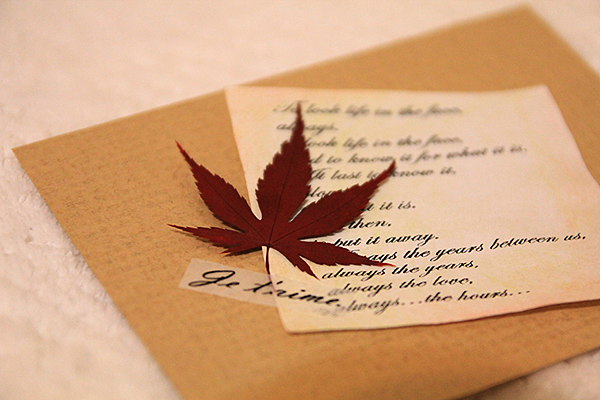 To look life in the face.
always.
look life in the face.
to know it for what it is.
At last to know it,
it is.
then,
put it away.
the years between us,
always the years,
always the love,
always...the hours...
Je t'aime.